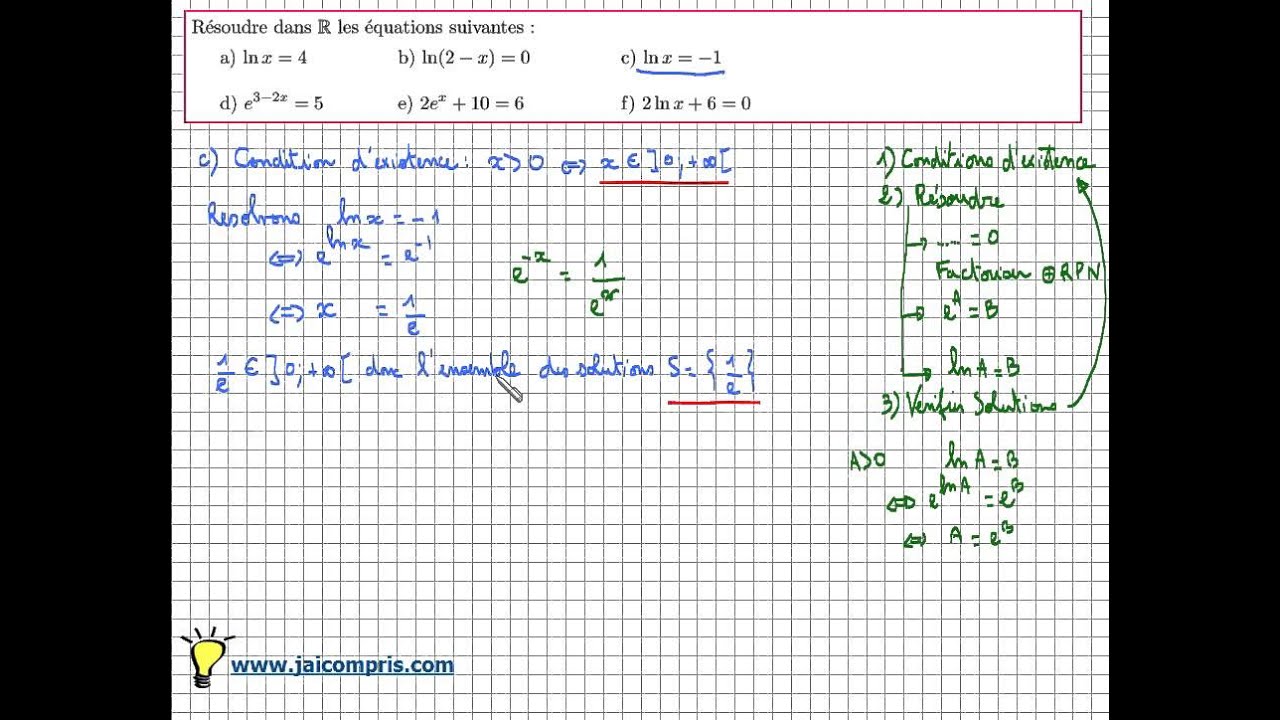 Résoudre dans ℝ les équations suivantes :
a) ln x = 4 b) ln(2 − x) = 0 c) ln x = −1
d) e^{3−2x} = 5 e) 2e^x + 10 = 6 f) 2 ln x + 6 = 0
c) Condition d'existence : x > 0 ⇔ x ∈ ]0; +∞[
Resolvons ln x = −1
⇔ e^{ln x} = e^{−1}
⇔ x = 1/e
e^{−x} = 1/e^x
1/e ∈ ]0; +∞[ donc l'ensemble des solutions S = {1/e}
1) Conditions d'existence
2) Résoudre
→ .... = 0
Factoriser ⊕ RPN
→ e^A = B
→ ln A = B
3) Vérifier Solutions
A > 0 ln A = B
⇔ e^{ln A} = e^B
⇔ A = e^B
www.jaicompris.com